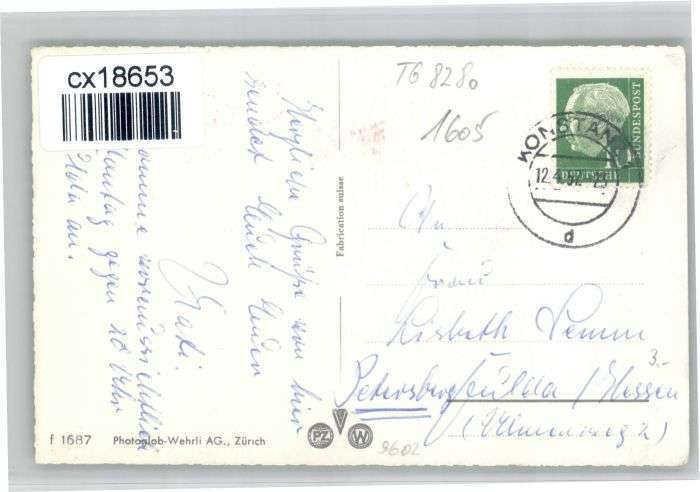 cx18653
TG 8280
1605
KONSTANZ
12.4.
d
BUNDESPOST
DEUTSCHE
Herzliche Grüße von hier
sendet Euch Euer
Kati.
komme voraussichtlich
Montag gegen 20 Uhr
an.
Fabrication suisse
An
Frau
Lisbeth Lemm
Petersberg Fulda / Hessen
(Ulmenweg 2)
3.-
9602
f 1687 Photoglob-Wehrli AG., Zürich
PZ W